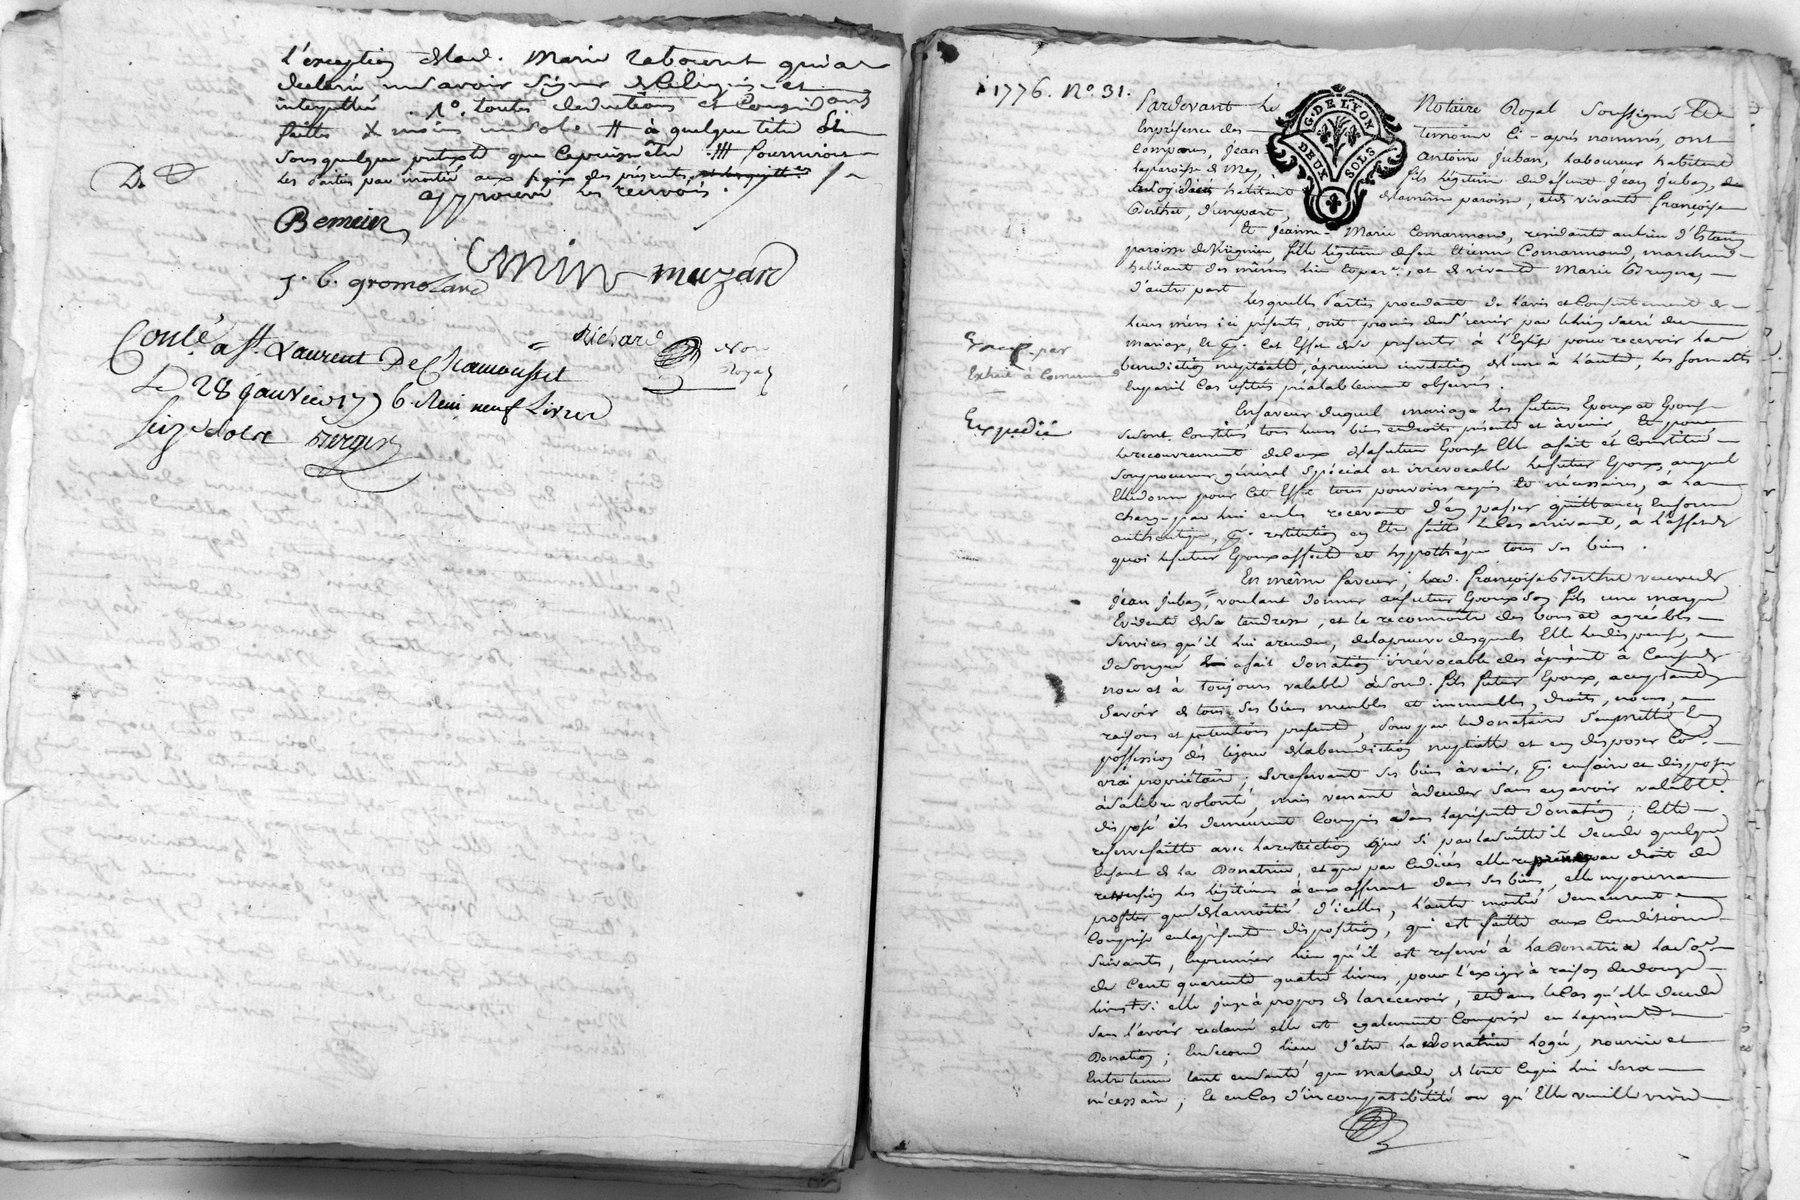 l'exception de lad. Marie
declaré ne savoir signer de ce enquis et
interpellée 1º. toutes deductions et
faitte X moins # à quelque titre et
sous quelque pretexte que ce puisse être #
les parties par moitié aux fraix des présentes
approuvé les renvois.
Bemeier
J. b. gromolard muzard
Richard Nore
Royal
Conlé a St. Laurent De Chamousset
Le 28 janvier 1776. Reçu neuf Livres
seize sols Berger
1776. Nº. 31.
G. DE LYON
DEUX SOLS
Pardevant le Notaire Royal soussigné et
en présence des temoins ci-après nommés, ont
comparu, Jean antoine Juban, laboureur habitant
la paroisse de Mey, fils légitime de defunt Jean Juban, de
habitant de la même paroisse, et de vivante françoise
Berthet, d'une part,
Et Jeanne-Marie Comarmond, residante au lieu d'
paroisse de fille légitime de feu Etienne Comarmond, marchand
habitant des mêmes lieu et par.e, et de vivante Marie Bruyere,
d'autre part
Lesquelles Parties procedant de l'avis et Consentement de
leurs mères ici présentes, ont promis de s'unir par le lien sacré du
mariage, et Cet Effet de se présenter à l'Eglise pour recevoir la
benediction nuptialle, à premiere invitation de l'une à l'autre, les formalités
en pareil Cas usitées préalablement observées.
par
Extrait à Comarmond
Expedié
En faveur duquel mariage les futurs Epoux et Epouse
se sont Constitués tous leurs biens et droits présents et à venir, Et pour
le recouvrement de Ceux de la future Epouse Elle a fait et Constitué
son procureur général spécial et irrévocable le futur Epoux, auquel
Elle donne pour Cet Effet tous pouvoirs requis et nécessaires, à la
charge par lui en les recevant d'en passer quittances en forme
authentique, restitution en être faitte le Cas arrivant, à l'effet de
quoi le futur Epoux affecte et hypothéque tous ses biens.
En même faveur, lad. françoise Berthet veuve de
Jean Juban, voulant donner au futur Epoux son fils une marque
Evidente de sa tendresse, et le reconnoitre des bons et agréables
services qu'il lui a rendus, de la preuve desquels Elle le dispense,
a fait donation irrévocable dès à présent à Cause de
noces et à toujours valable à sond. fils futur Epoux, acceptant
savoir de tous ses biens meubles et immeubles, droits, noms,
raisons et prétentions présents, pour par le donataire s'en mettre en
possession dès le jour de la benediction nuptialle et en disposer Co.
vrai propriétaire; se reservant ses biens à venir, p. en faire et disposer
à sa libre volonté, mais venant à deceder sans en avoir valablem.t
disposé ils demeurent Compris dans la présente donation; Cette
reserve faitte avec la restriction que si par la suitte il decede quelque
Enfant de la Donatrice, et que par ledécès elle reprenne par droit de
reversion les légitimes à eux afferant dans ses biens, elle n'en pourra
profiter que de la moitié d'icelles, l'autre moitié demeurant
Comprise en la présente disposition, qui est faitte aux Conditions
suivantes, en premier lieu qu'il est reservé à la Donatrice la somme
de Cent quarente quatre livres, pour l'exiger à raison de douze
livres elle juge à propos de la recevoir, et dans le Cas qu'elle decede
sans l'avoir reclamé elle est egalement Comprise en la présente
Donation; En second lieu d'être la Donatrice logée, nourrie et
Entretenue tant en santé que malade, de tout ce qui lui sera
nécessaire; Et en Cas d'incompatibilité ou qu'Elle veuille vivre